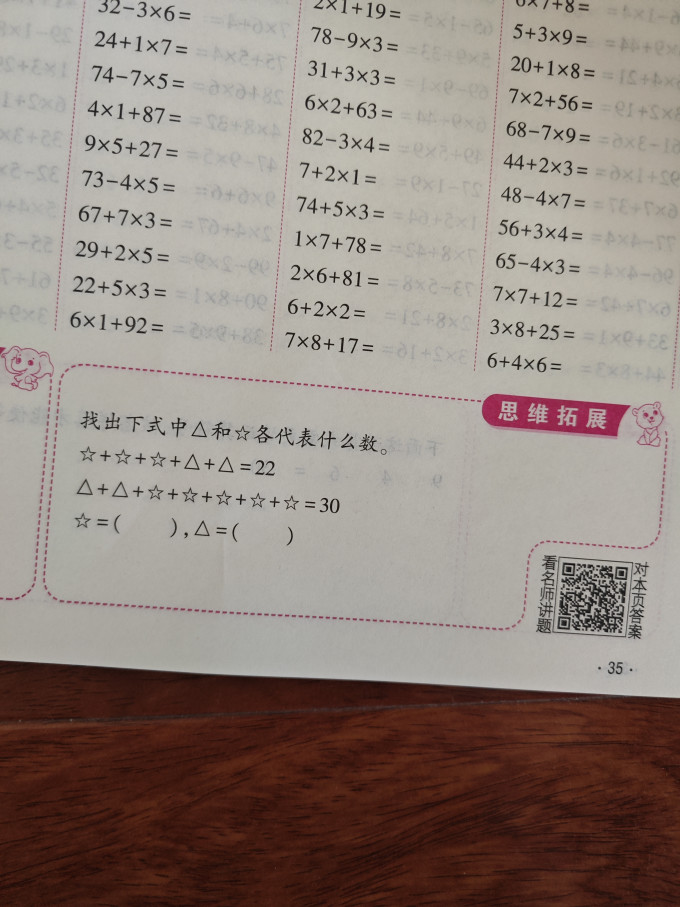 32-3×6=
24+1×7=
74-7×5=
4×1+87=
9×5+27=
73-4×5=
67+7×3=
29+2×5=
22+5×3=
6×1+92=
2×1+19=
78-9×3=
31+3×3=
6×2+63=
82-3×4=
7+2×1=
74+5×3=
1×7+78=
2×6+81=
6+2×2=
7×8+17=
6×7+8=
5+3×9=
20+1×8=
7×2+56=
68-7×9=
44+2×3=
48-4×7=
56+3×4=
65-4×3=
7×7+12=
3×8+25=
6+4×6=
思维拓展
找出下式中△和☆各代表什么数。
☆+☆+☆+△+△=22
△+△+☆+☆+☆+☆+☆=30
☆=( ),△=( )
看名师讲题
对本页答案
·35·